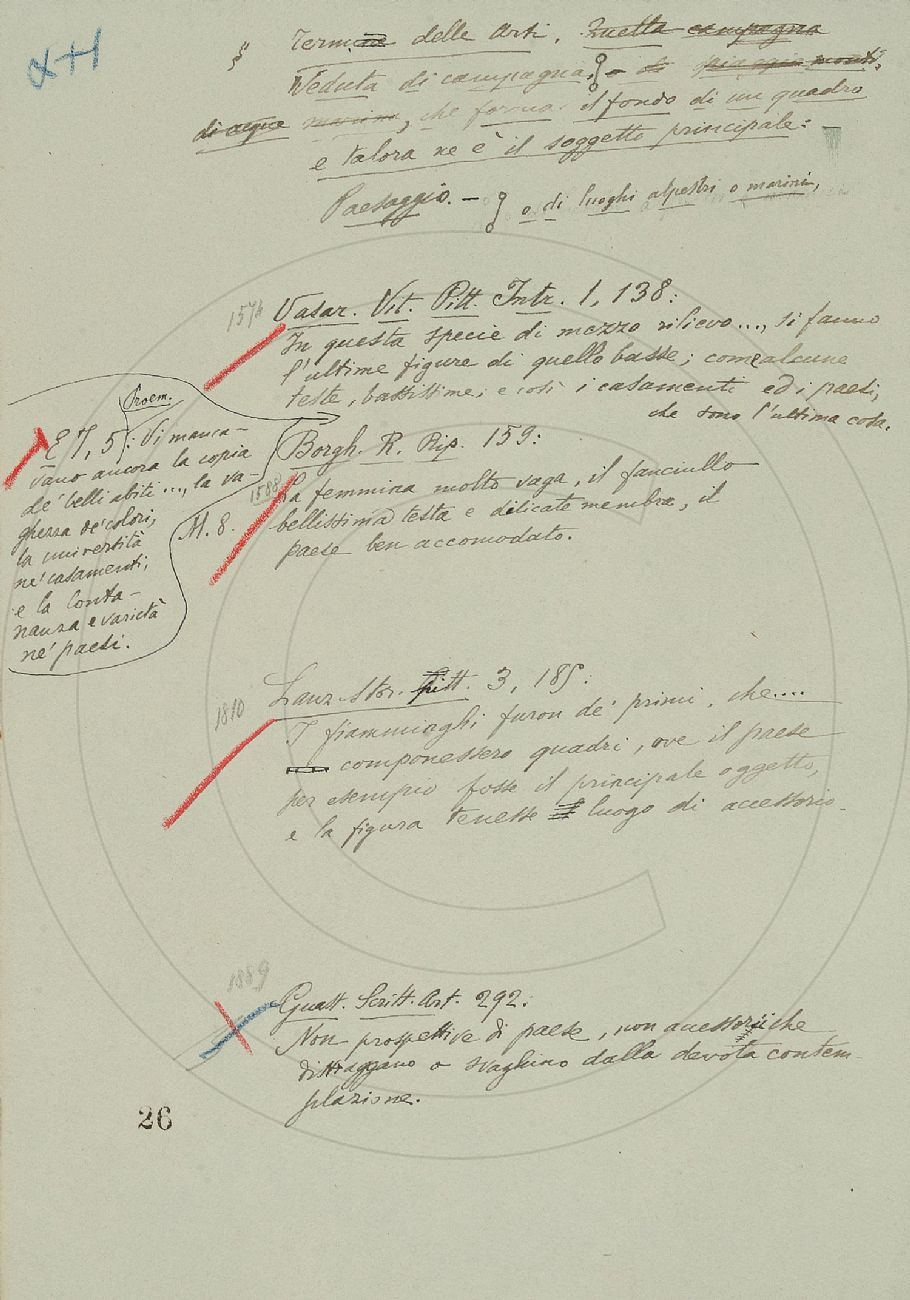 α+1
§ Termine delle Arti. Quella campagna
Veduta di campagna, – di spiagge monti,
di acque marina, che forma il fondo di un quadro
e talora ne è il soggetto principale:
Paesaggio. – o di luoghi alpestri o marini,
1574 Vasar. Vit. Pitt. Intr. 1, 138:
In questa specie di mezzo rilievo..., si fanno
l'ultime figure di quello basse; come alcune
teste, bassissime; e così i casamenti ed i paesi,
che sono l'ultima cosa.
Proem.
E 7, 5: Vi manca-
vano ancora la copia
de' belli abiti..., la va-
ghezza de' colori,
la università
ne' casamenti,
e la lonta-
nanza e varietà
ne' paesi.
1588 Borgh. R. Rip. 159:
M. 8. La femmina molto vaga, il fanciullo
bellissima testa e dilicate membra, il
paese ben accomodato.
1810 Lanz. Stor. Pitt. 3, 185:
I fiamminghi furon de' primi, che....
componessero quadri, ove il paese
per esempio fosse il principale oggetto,
e la figura tenesse luogo di accessorio.
1859 Guast. Scritt. Art. 292:
Non prospettive di paese, non accessorii che
distraggano o svaghino dalla devota contem-
plazione.
26